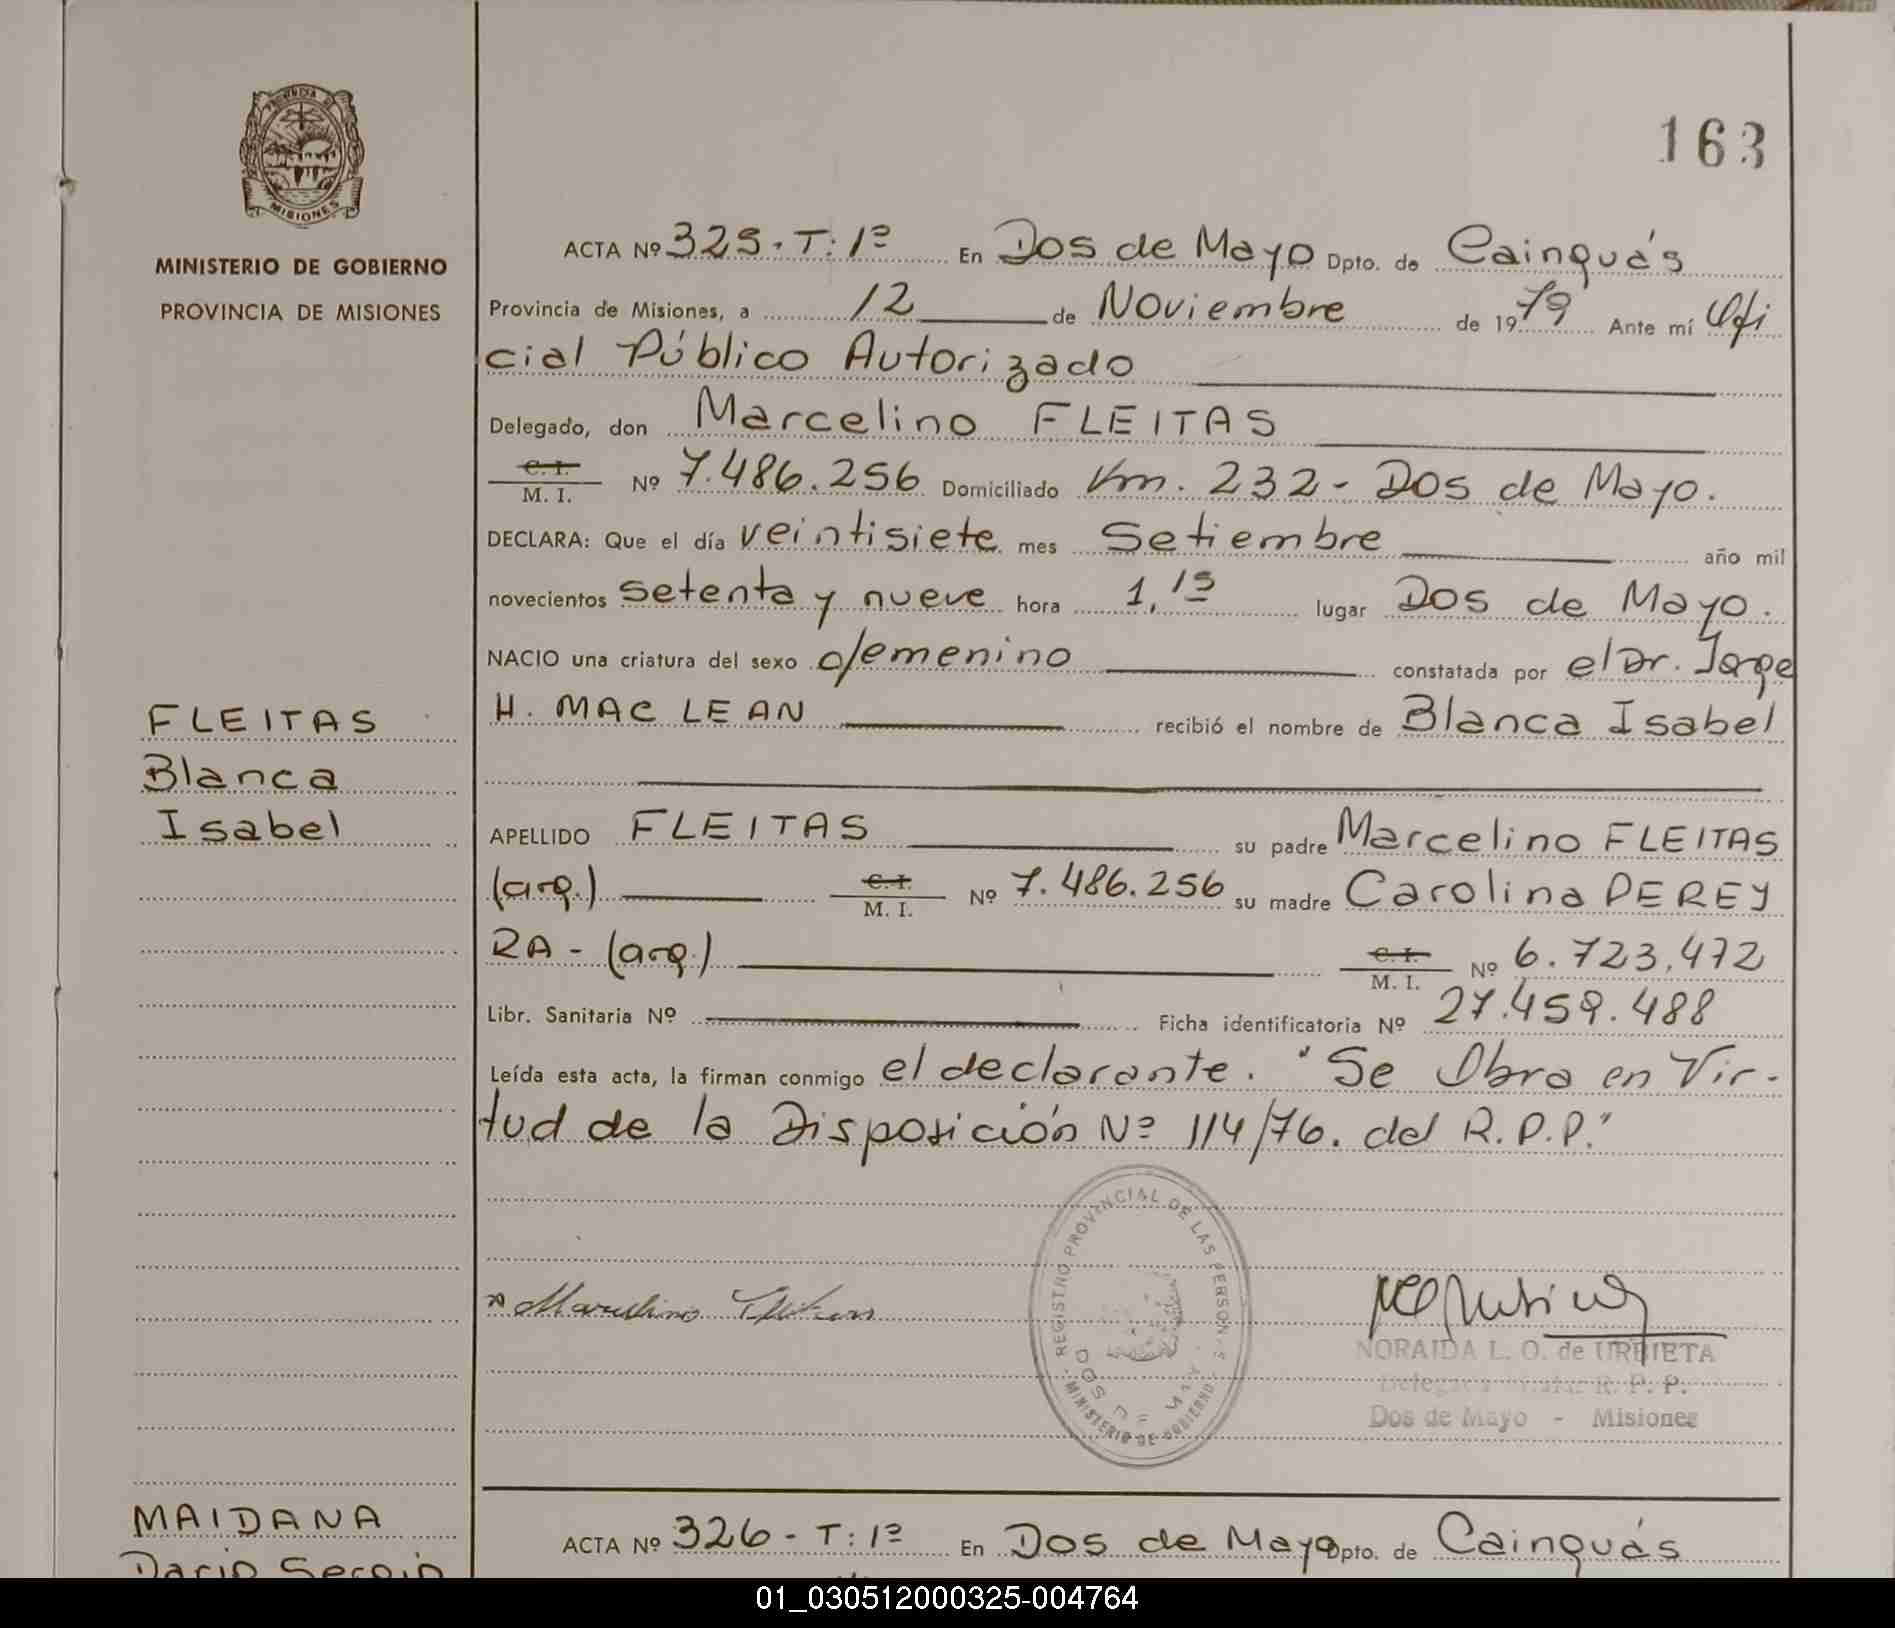 163
PROVINCIA DE
MISIONES
MINISTERIO DE GOBIERNO
PROVINCIA DE MISIONES
ACTA Nº 325 - T: 1º En Dos de Mayo Dpto. de Cainguás
Provincia de Misiones, a 12 de Noviembre de 1979 Ante mí Ofi
cial Público Autorizado
Delegado, don Marcelino FLEITAS
C. I.
M. I. Nº 7.486.256 Domiciliado Km. 232 - Dos de Mayo.
DECLARA: Que el día veintisiete mes Setiembre año mil
novecientos setenta y nueve hora 1,15 lugar Dos de Mayo.
NACIO una criatura del sexo femenino constatada por el Dr. Jorge
H. MAC LEAN recibió el nombre de Blanca Isabel
FLEITAS
Blanca
Isabel
APELLIDO FLEITAS su padre Marcelino FLEITAS
(arg.) C. I. M. I. Nº 7.486.256 su madre Carolina PEREY
RA - (arg.) C. I. M. I. Nº 6.723.472
Libr. Sanitaria Nº Ficha identificatoria Nº 27.459.488
Leída esta acta, la firman conmigo el declarante. "Se Obra en Vir-
tud de la Disposición Nº 114/76. del R.P.P."
REGISTRO PROVINCIAL DE LAS PERSONAS
DOS DE MAYO
MINISTERIO DE GOBIERNO
Marcelino Fleitas
NORAIDA L. O. de URBIETA
R. P. P.
Dos de Mayo - Misiones
MAIDANA
Dario Sergio
ACTA Nº 326 - T: 1º En Dos de Mayo Dpto. de Cainguás
01_030512000325-004764